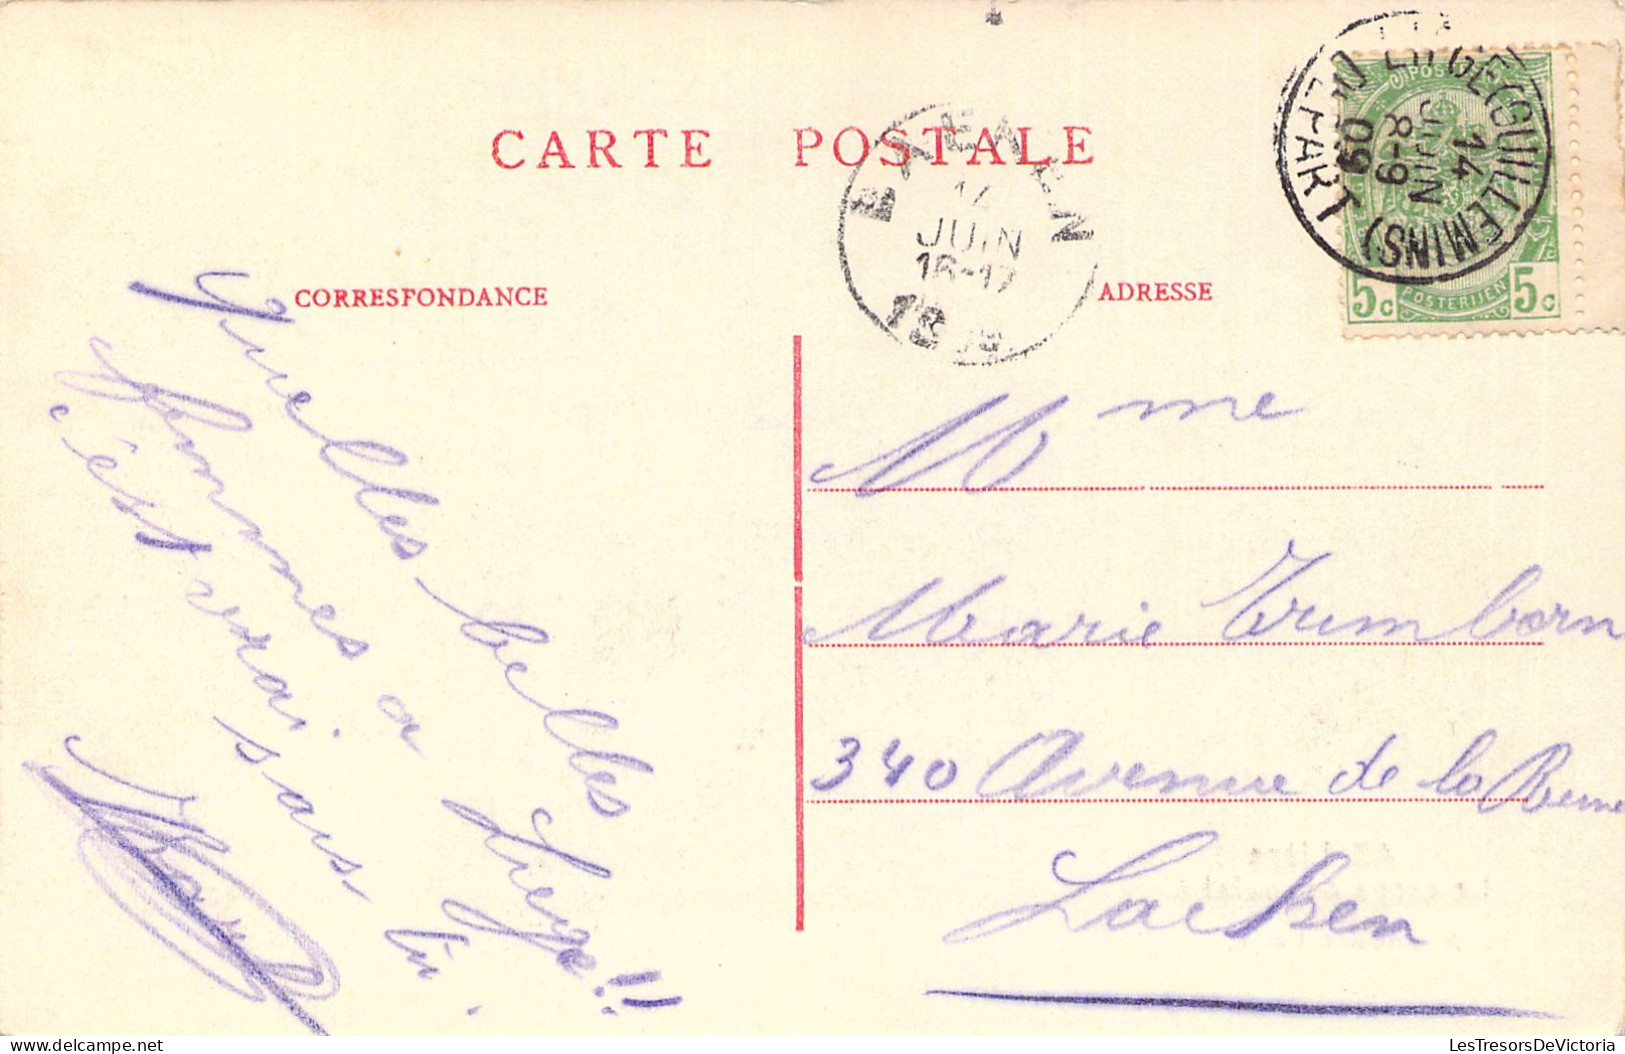 CARTE POSTALE
CORRESPONDANCE
ADRESSE
LAEKEN
14
JUIN
16-17
LIEGE (GUILLEMINS)
14
JUIN
8-9
09
DEPART
POSTERIJEN
5c 5c
Quelles belles
femmes a Liege!!
c'est vrai
sais-tu.
Mme
Marie Trumborn
340 Avenue de la Reine
Laeken
LesTresorsDeVictoria